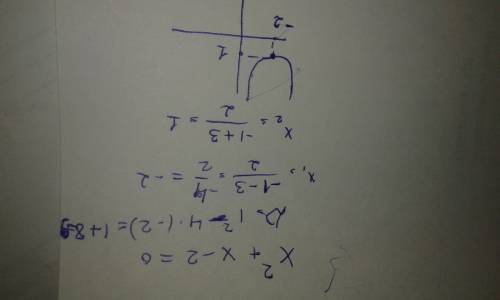 x² + x - 2 = 0
D = 1² - 4·(-2) = 1+8=9
x₁ = -1-3/2 = -4/2 = -2
x₂ = -1+3/2 = 1
1
-2